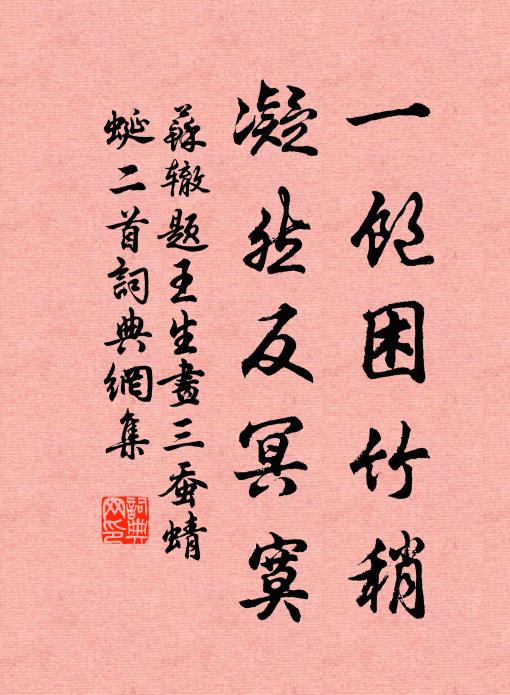 一飽困竹稍
凝然反冥寞
蘇辙题王生畫三蚕蜻
蜒二首詞典網集
詞典
网印